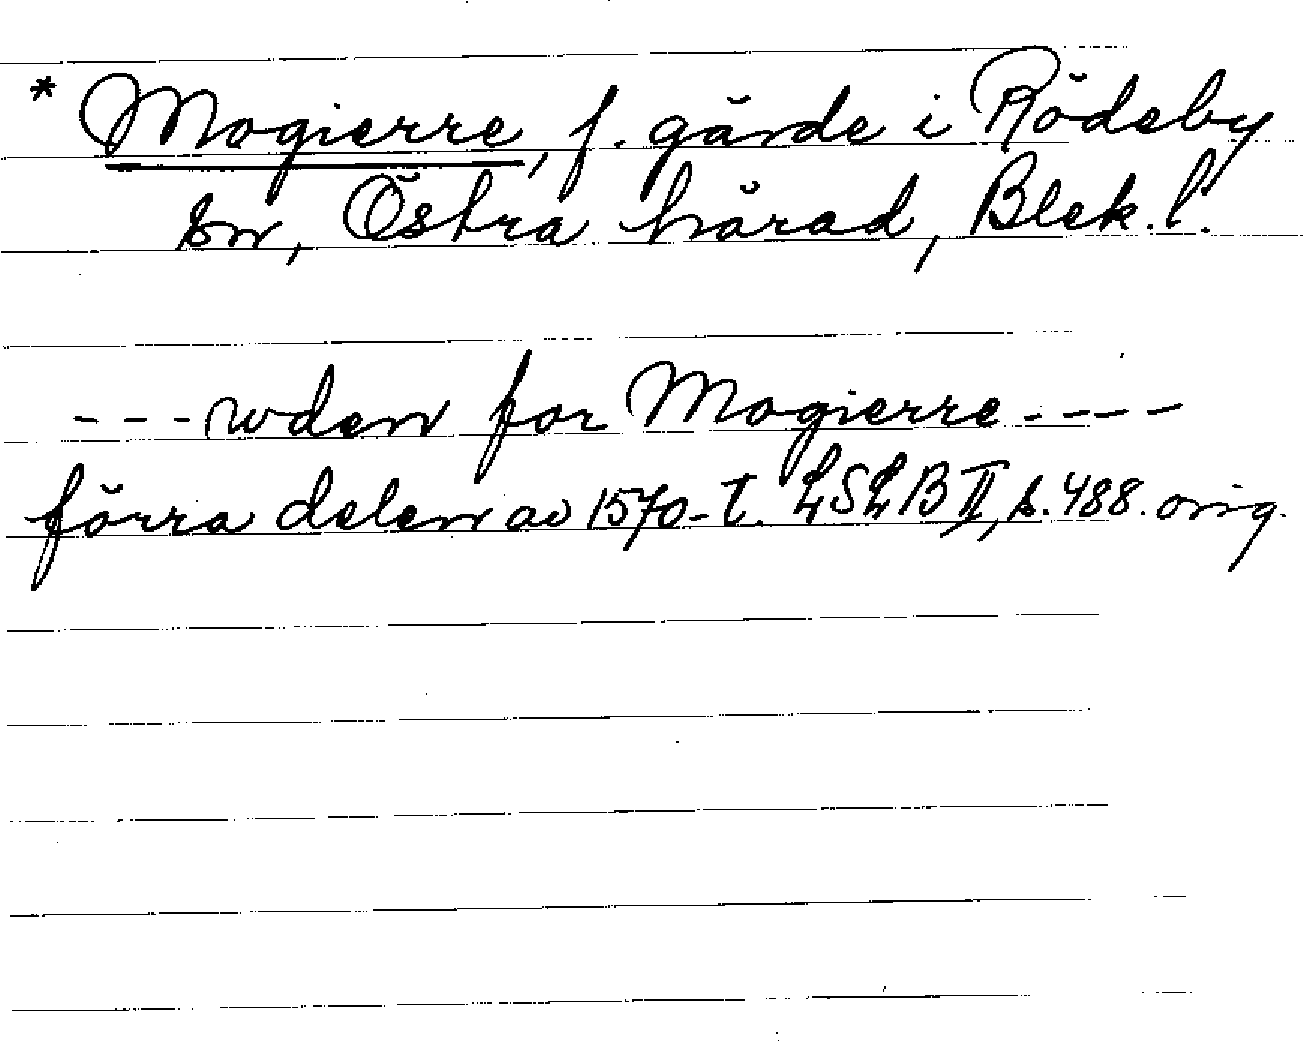 * Mogierre, f. gärde i Rödeby
sn, Östra härad, Blek. l.
- - - wden for Mogierre - - - -
förra delen av 1570-t. LSLB II, s. 488. orig.